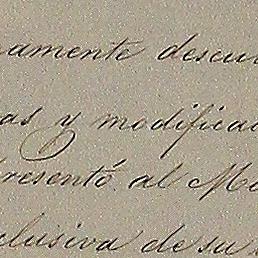 amente descu
as y modifica
resentó al M
clusiva de su